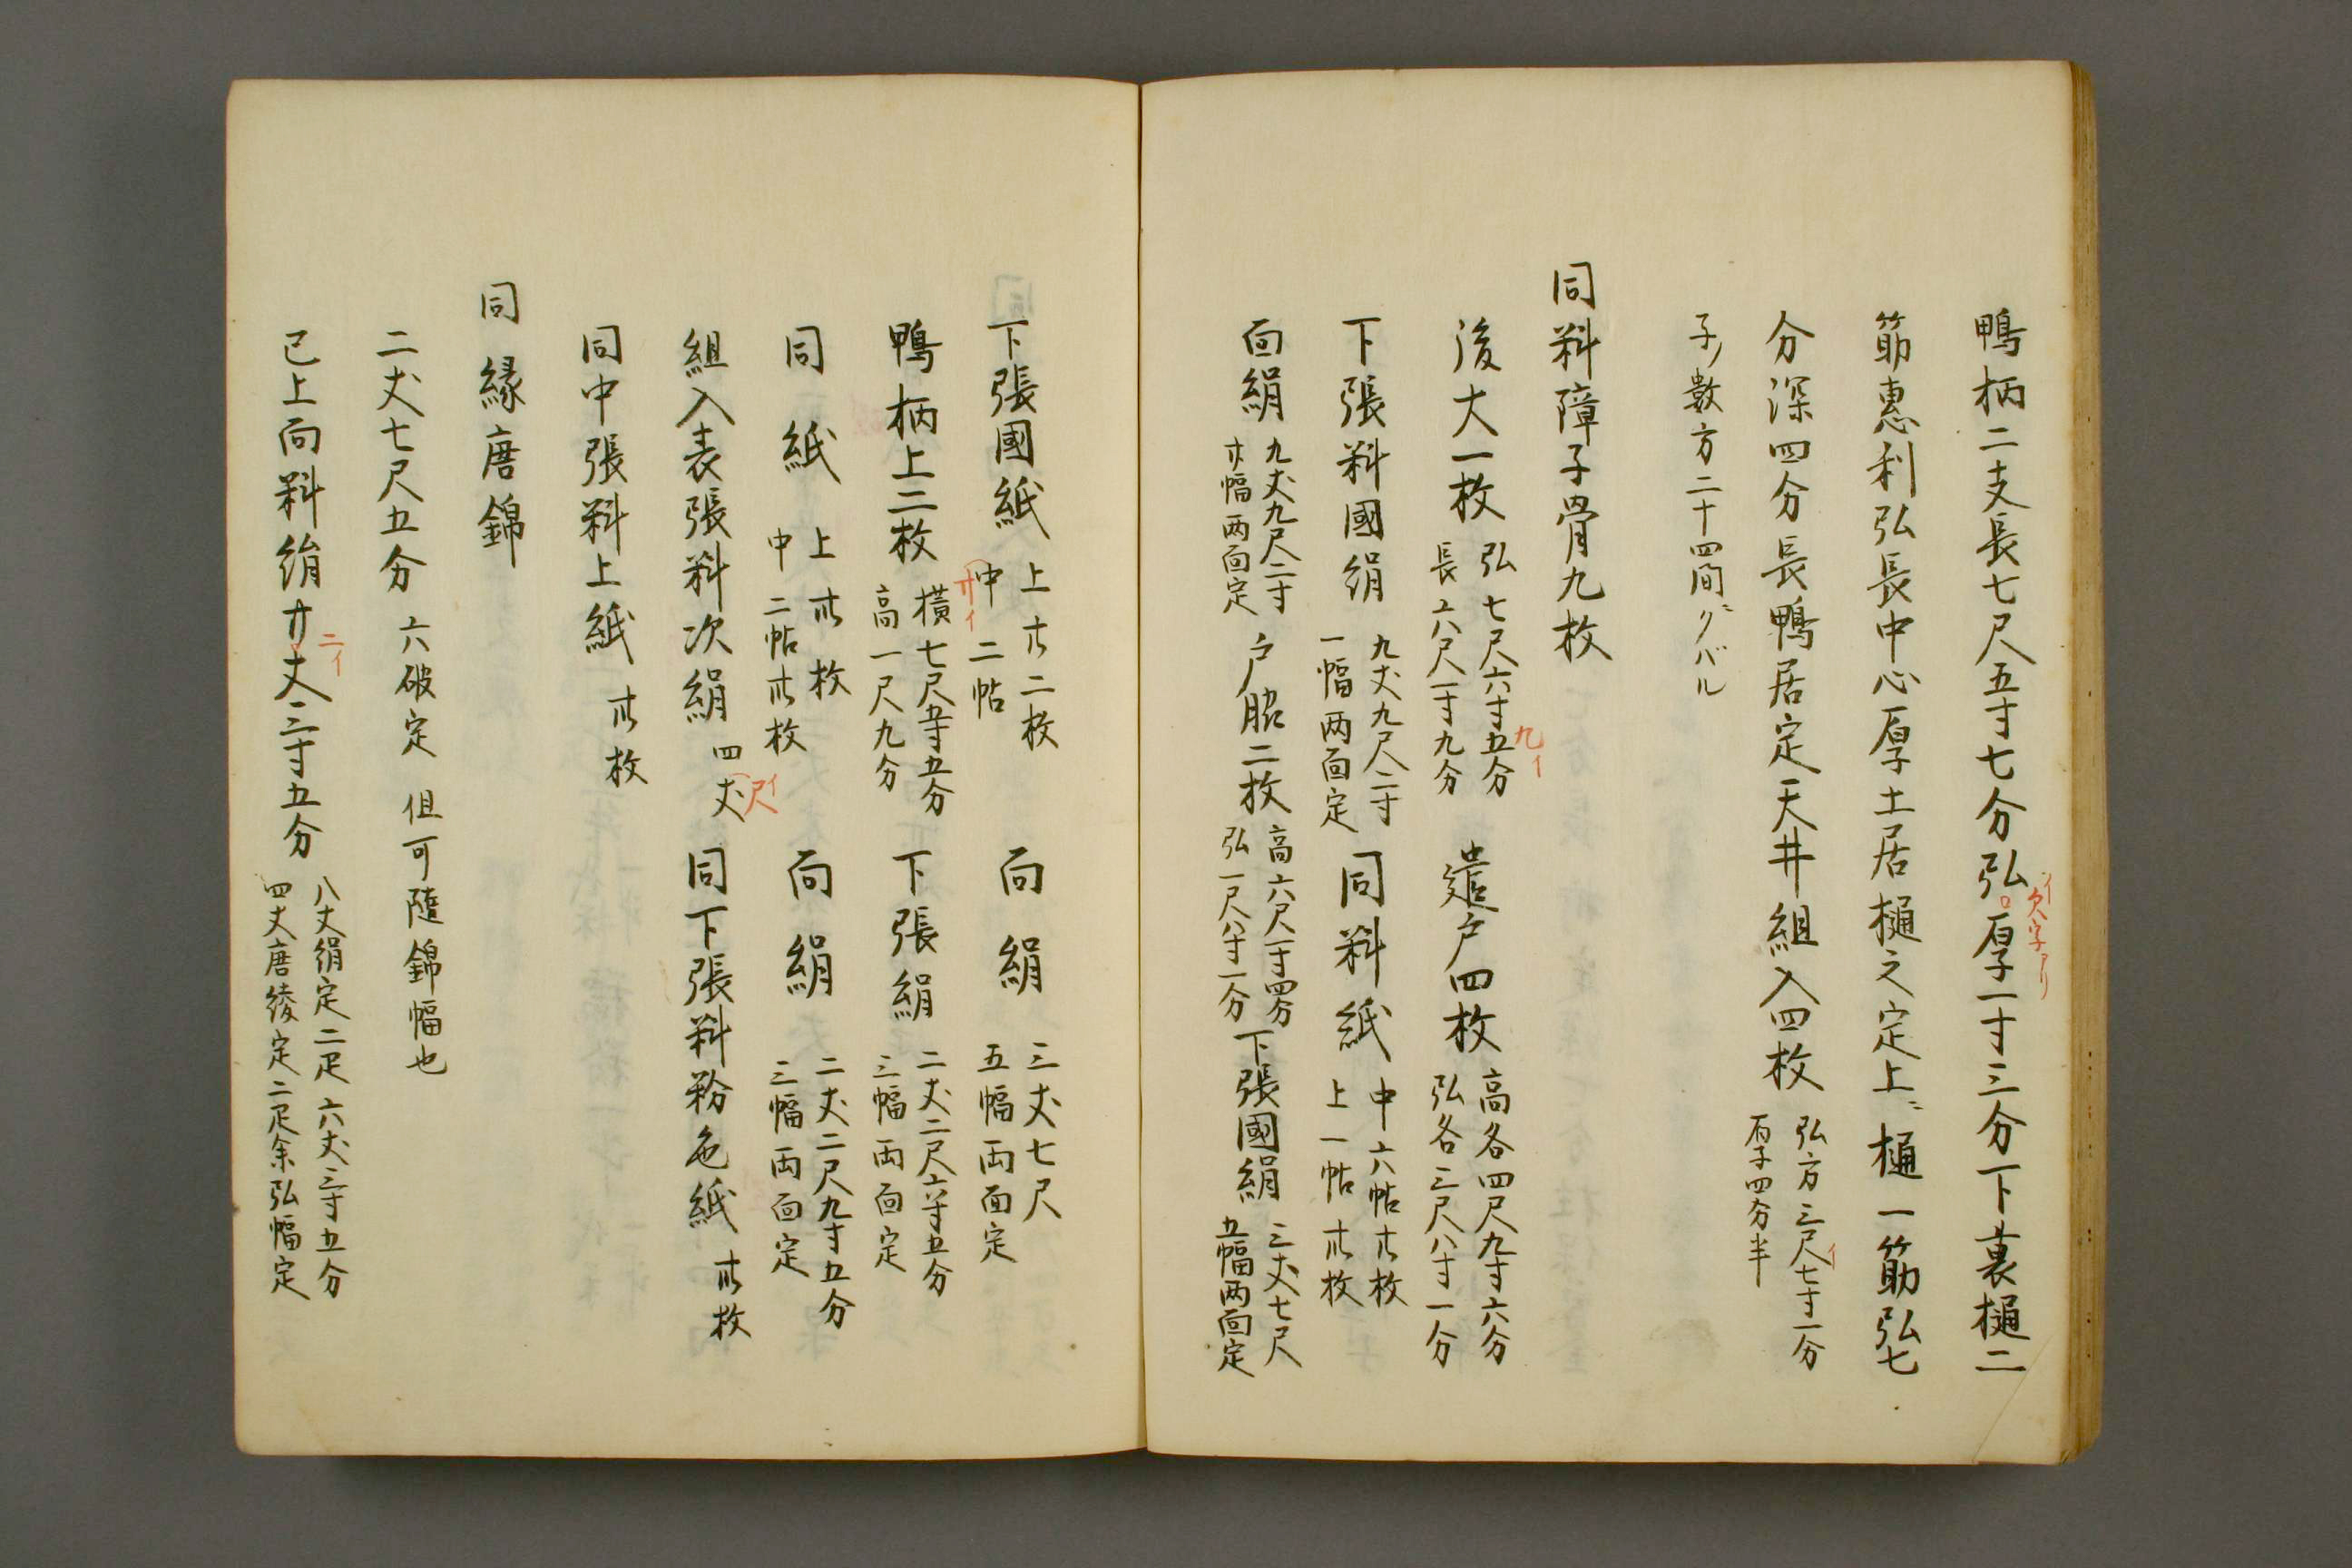 鴨柄二支長七尺五寸七分弘厚一寸三分下裏樋二
イ欠字アリ
筋恵利弘長中心厚土居樋之定上ニ樋一筋弘七
分深四分長鴨居定天井組入四枚
弘方三尺七寸一分
イ
厚四分半
子ノ数方二十四間ニクバル
同料障子骨九枚
後大一枚
弘七尺六寸五分
九イ
長六尺一寸九分
遣戸四枚
高各四尺九寸六分
弘各三尺八寸一分
下張料國絹
九丈九尺二寸
一幅両面定
同料紙
中六帖卄枚
上一帖卅枚
面絹
九丈九尺二寸
幅両面定
戸脇二枚
高六尺一寸四分
弘一尺八寸一分
下張國絹
三丈七尺
五幅両面定
下張國紙
上卄二枚
中二帖
卄イ
面絹
三丈七尺
五幅両面定
鴨柄上二枚
横七尺五寸五分
高一尺九分
下張絹
二丈二尺六寸五分
三幅両面定
同紙
上卅枚
中二帖卅枚
面絹
二丈二尺九寸五分
三幅両面定
組入表張料次絹
四丈
尺イ
同下張料粉色紙
卅枚
同中張料上紙
卅枚
同縁唐錦
二丈七尺五分六破定但可随錦幅也
已上面料絹廿丈三寸五分
二イ
八丈絹定二疋六丈三寸五分
四丈唐綾定二疋余弘幅定